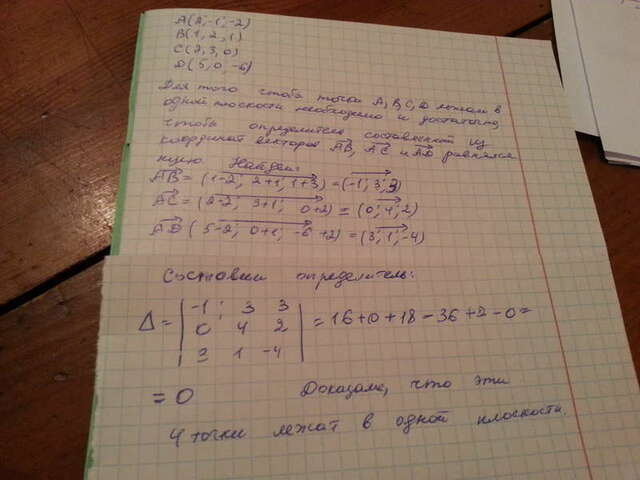 A(2,-1,-2)
B(1,2,1)
C(2,3,0)
D(5,0,-6)
Для того чтобы точки A,B,C,D лежали в
одной плоскости необходимо и достаточно,
чтобы определитель составленный из
координат векторов AB, AC и AD равнялся
нулю. Найдем:
AB = (1-2; 2+1; 1+3) = (-1; 3; 3)
AC = (2-2; 3+1; 0+2) = (0; 4; 2)
AD (5-2; 0+1; -6+2) = (3; 1; -4)
Составим определитель:
Δ = | -1; 3 3 |
| 0 4 2 | = 16+0+18-36+2-0=
| 3 1 -4 |
= 0 Доказали, что эти
4 точки лежат в одной плоскости.